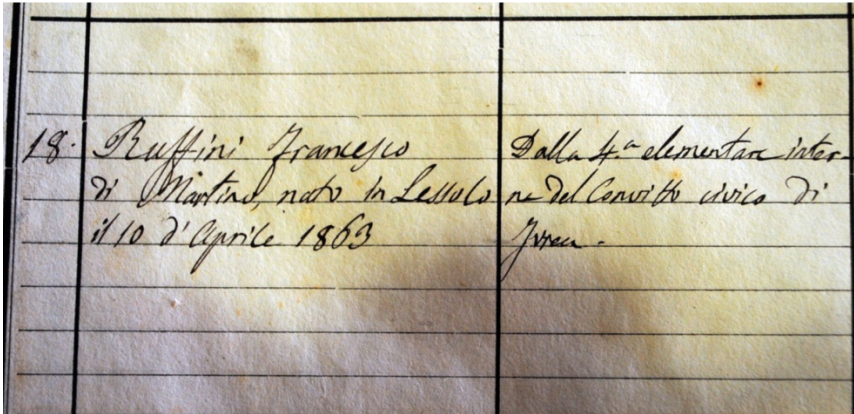 18. Ruffini Francesco
di Martino, nato in Lessolo
il 10 d'Aprile 1863
Dalla 4.a elementare inter-
na del Convitto civico di
Ivrea.